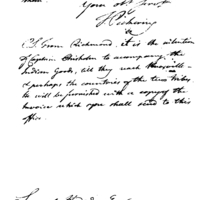 Your Ob. Serv't
T. Pickering
P.S. From Richmond, it is the intention
of Captain Chisholm to accompany the
Indian Goods, till they reach Knoxville
& perhaps the countries of the two tribes
He will be furnished with a copy of the
Invoice which you shall send to this
office.